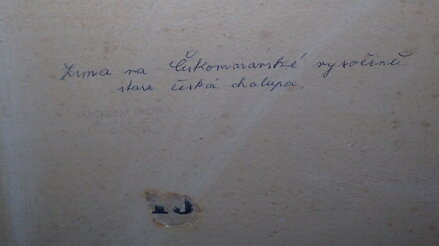 Zima na Českomoravské vysočině
stará česká chalupa.
15